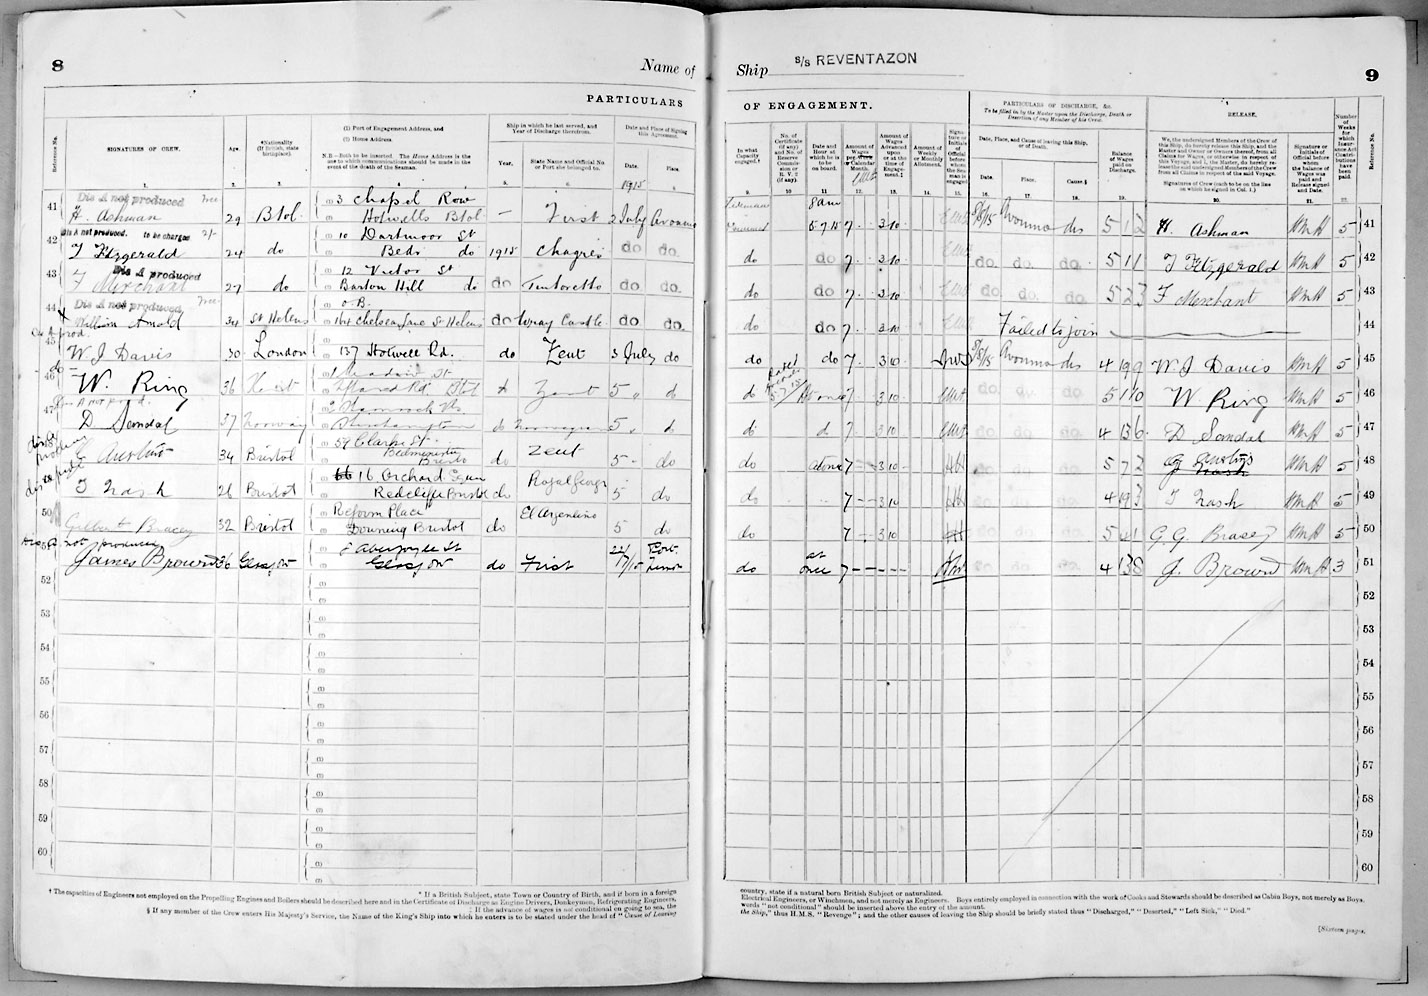 8
Name of
PARTICULARS
Reference No.
SIGNATURES OF CREW.
Age.
*Nationality
(If British, state
birthplace).
(1) Port of Engagement Address, and
(2) Home Address.
N.B.—Both to be inserted. The Home Address is the
one to which communications should be made in the
event of the death of the Seaman.
Ship in which he last served, and
Year of Discharge therefrom.
Year.
State Name and Official No.
or Port she belonged to.
Date and Place of Signing
this Agreement.
Date.
Place.
1. 2. 3. 5.
1915
41
Dis A not produced
H. Ashman 29 Bstol
3 Chapel Row
Hotwells Bstol — First 2 July Avonmo
42
Dis A not produced. to be charged 2/-
T Fitzgerald 24 do
10 Dartmoor St
Beds do 1915 Chagres do do.
43
Dis A produced
F Merchant 27 do
12 Victor St
Barton Hill do do Tintoretto do do.
44
Dis A not produced
William Arnold 34 St Helens
O.B.
164 Chelsea Lane St Helens do Wray Castle do do.
45
W J Davis 30 London
137 Hotwell Rd. do Zent 3 July do
46
W. Ring 36 Kent
Zent 5 " do
47
D Sendal 37 Norway
do Norwegian 5 " do
48
E Austin 34 Bristol
59 Clarke St.
Bedminster
Bristol do Zent 5 - do
T Nash 26 Bristol
16 Orchard
Redcliffe Bristol do Royal George 5 do
50
Gilbert Bracey 32 Bristol
Reform Place
Downing Bristol do El Argentino 5 do
51
Dis A not produced
James Brown 36 Glasgow
Aberfoyle St
Glasgow do First 22/7/15 Port Limon
52
53
54
55
56
57
58
59
60
† The capacities of Engineers not employed on the Propelling Engines and Boilers should be described here and in the Certificate of Discharge as Engine Drivers, Donkeymen, Refrigerating Engineers,
* If a British Subject, state Town or Country of Birth, and if born in a foreign
‡ If the advance of wages is not conditional on going to sea, the
§ If any member of the Crew enters His Majesty's Service, the Name of the King's Ship into which he enters is to be stated under the head of "Cause of Leaving
Ship
s/s REVENTAZON
9
OF ENGAGEMENT.
In what
Capacity
engaged.†
No. of
Certificate
(if any)
and No. of
Reserve
Commission
or R.V. 2
(if any).
Date and
Hour at
which he is
to be
on board.
Amount of
Wages
per
Calendar
Month.
Amount of
Wages
Advanced
upon
or at the
time of
Engagement.‡
Amount of
Weekly
or Monthly
Allotment.
Signature
or Initials
of Official
before
whom
the Seaman
is engaged
PARTICULARS OF DISCHARGE, &c.
To be filled in by the Master upon the Discharge, Death or
Desertion of any Member of his Crew.
Date, Place, and Cause of leaving this Ship,
or of Death.
Date.
Place.
Cause §
Balance
of Wages
paid on
Discharge.
RELEASE.
We, the undersigned Members of the Crew of
this Ship, do hereby release this Ship, and the
Master and Owner or Owners thereof, from all
Claims for Wages, or otherwise in respect of
this Voyage, and I, the Master, do hereby release
the said undersigned Members of the Crew
from all Claims in respect of the said Voyage.
Signatures of Crew (each to be on the line
on which he signed in Col. 1.)
Signature or
Initials of
Official before
whom
the balance of
Wages was
paid and
Release signed
and Date.
Number
of
Weeks
for
which
Insurance Act
Contributions
have
been
paid.
Reference No.
9. 10 11 12. 13. 14. 15. 16. 17. 18. 19. 20. 21. 22.
Fireman 8am 5.7.15 7 . 3 10 5/8/15 Avonmo dis 5 1 2 H. Ashman HMH 5 41
do do 7. 3 10 do. do. do. 5 1 1 T Fitzgerald HMH 5 42
do do 7. 3 10 do. do. do. 5 2 3 F Merchant HMH 5 43
do do 7. 3 10 Failed to join 44
do do 7. 3 10 5/8/15 Avonmo dis 4 19 9 W J Davis HMH 5 45
do 7 3 10 5 1 10 W. Ring HMH 5 46
do do 7. 3 10 4 13 6 D Sendal HMH 5 47
do at once 7 — 3 10 5 7 2 Austin HMH 5 48
do 7 — 3 10 4 9 3 T Nash HMH 5 49
do 7 — 3 10 5 4 1 G. G. Brasey HMH 5 50
do at once 7 — — — — 4 13 8 J. Brown HMH 3 51
52
53
54
55
56
57
58
59
60
country, state if a natural born British Subject or naturalized.
Electrical Engineers, or Winchmen, and not merely as Engineers. Boys entirely employed in connection with the work of Cooks and Stewards should be described as Cabin Boys, not merely as Boys.
words "not conditional" should be inserted above the entry of the amount.
the Ship," thus H.M.S. "Revenge"; and the other causes of leaving the Ship should be briefly stated thus "Discharged," "Deserted," "Left Sick," "Died."
[Sixteen pages.